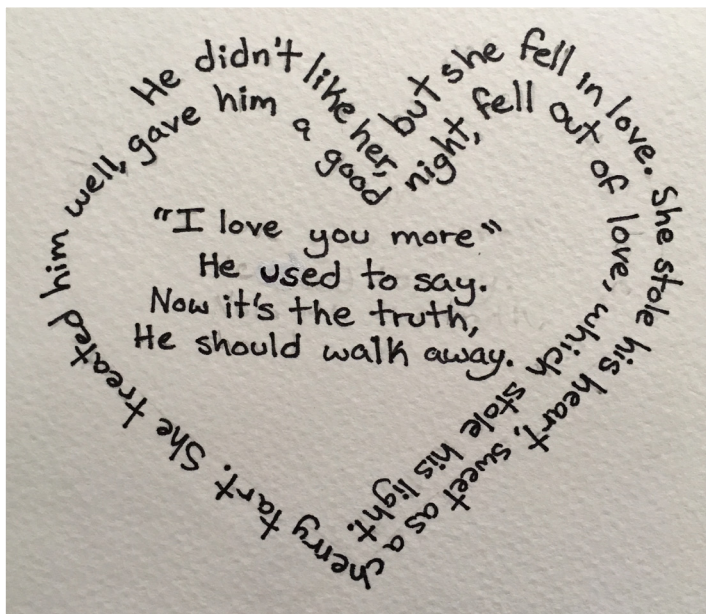 He didn't like her, but she fell in love. She stole his heart, sweet as a cherry tart. She treated him well, gave him a good night, fell out of love, which stole his light.
"I love you more"
He used to say.
Now it's the truth,
He should walk away.